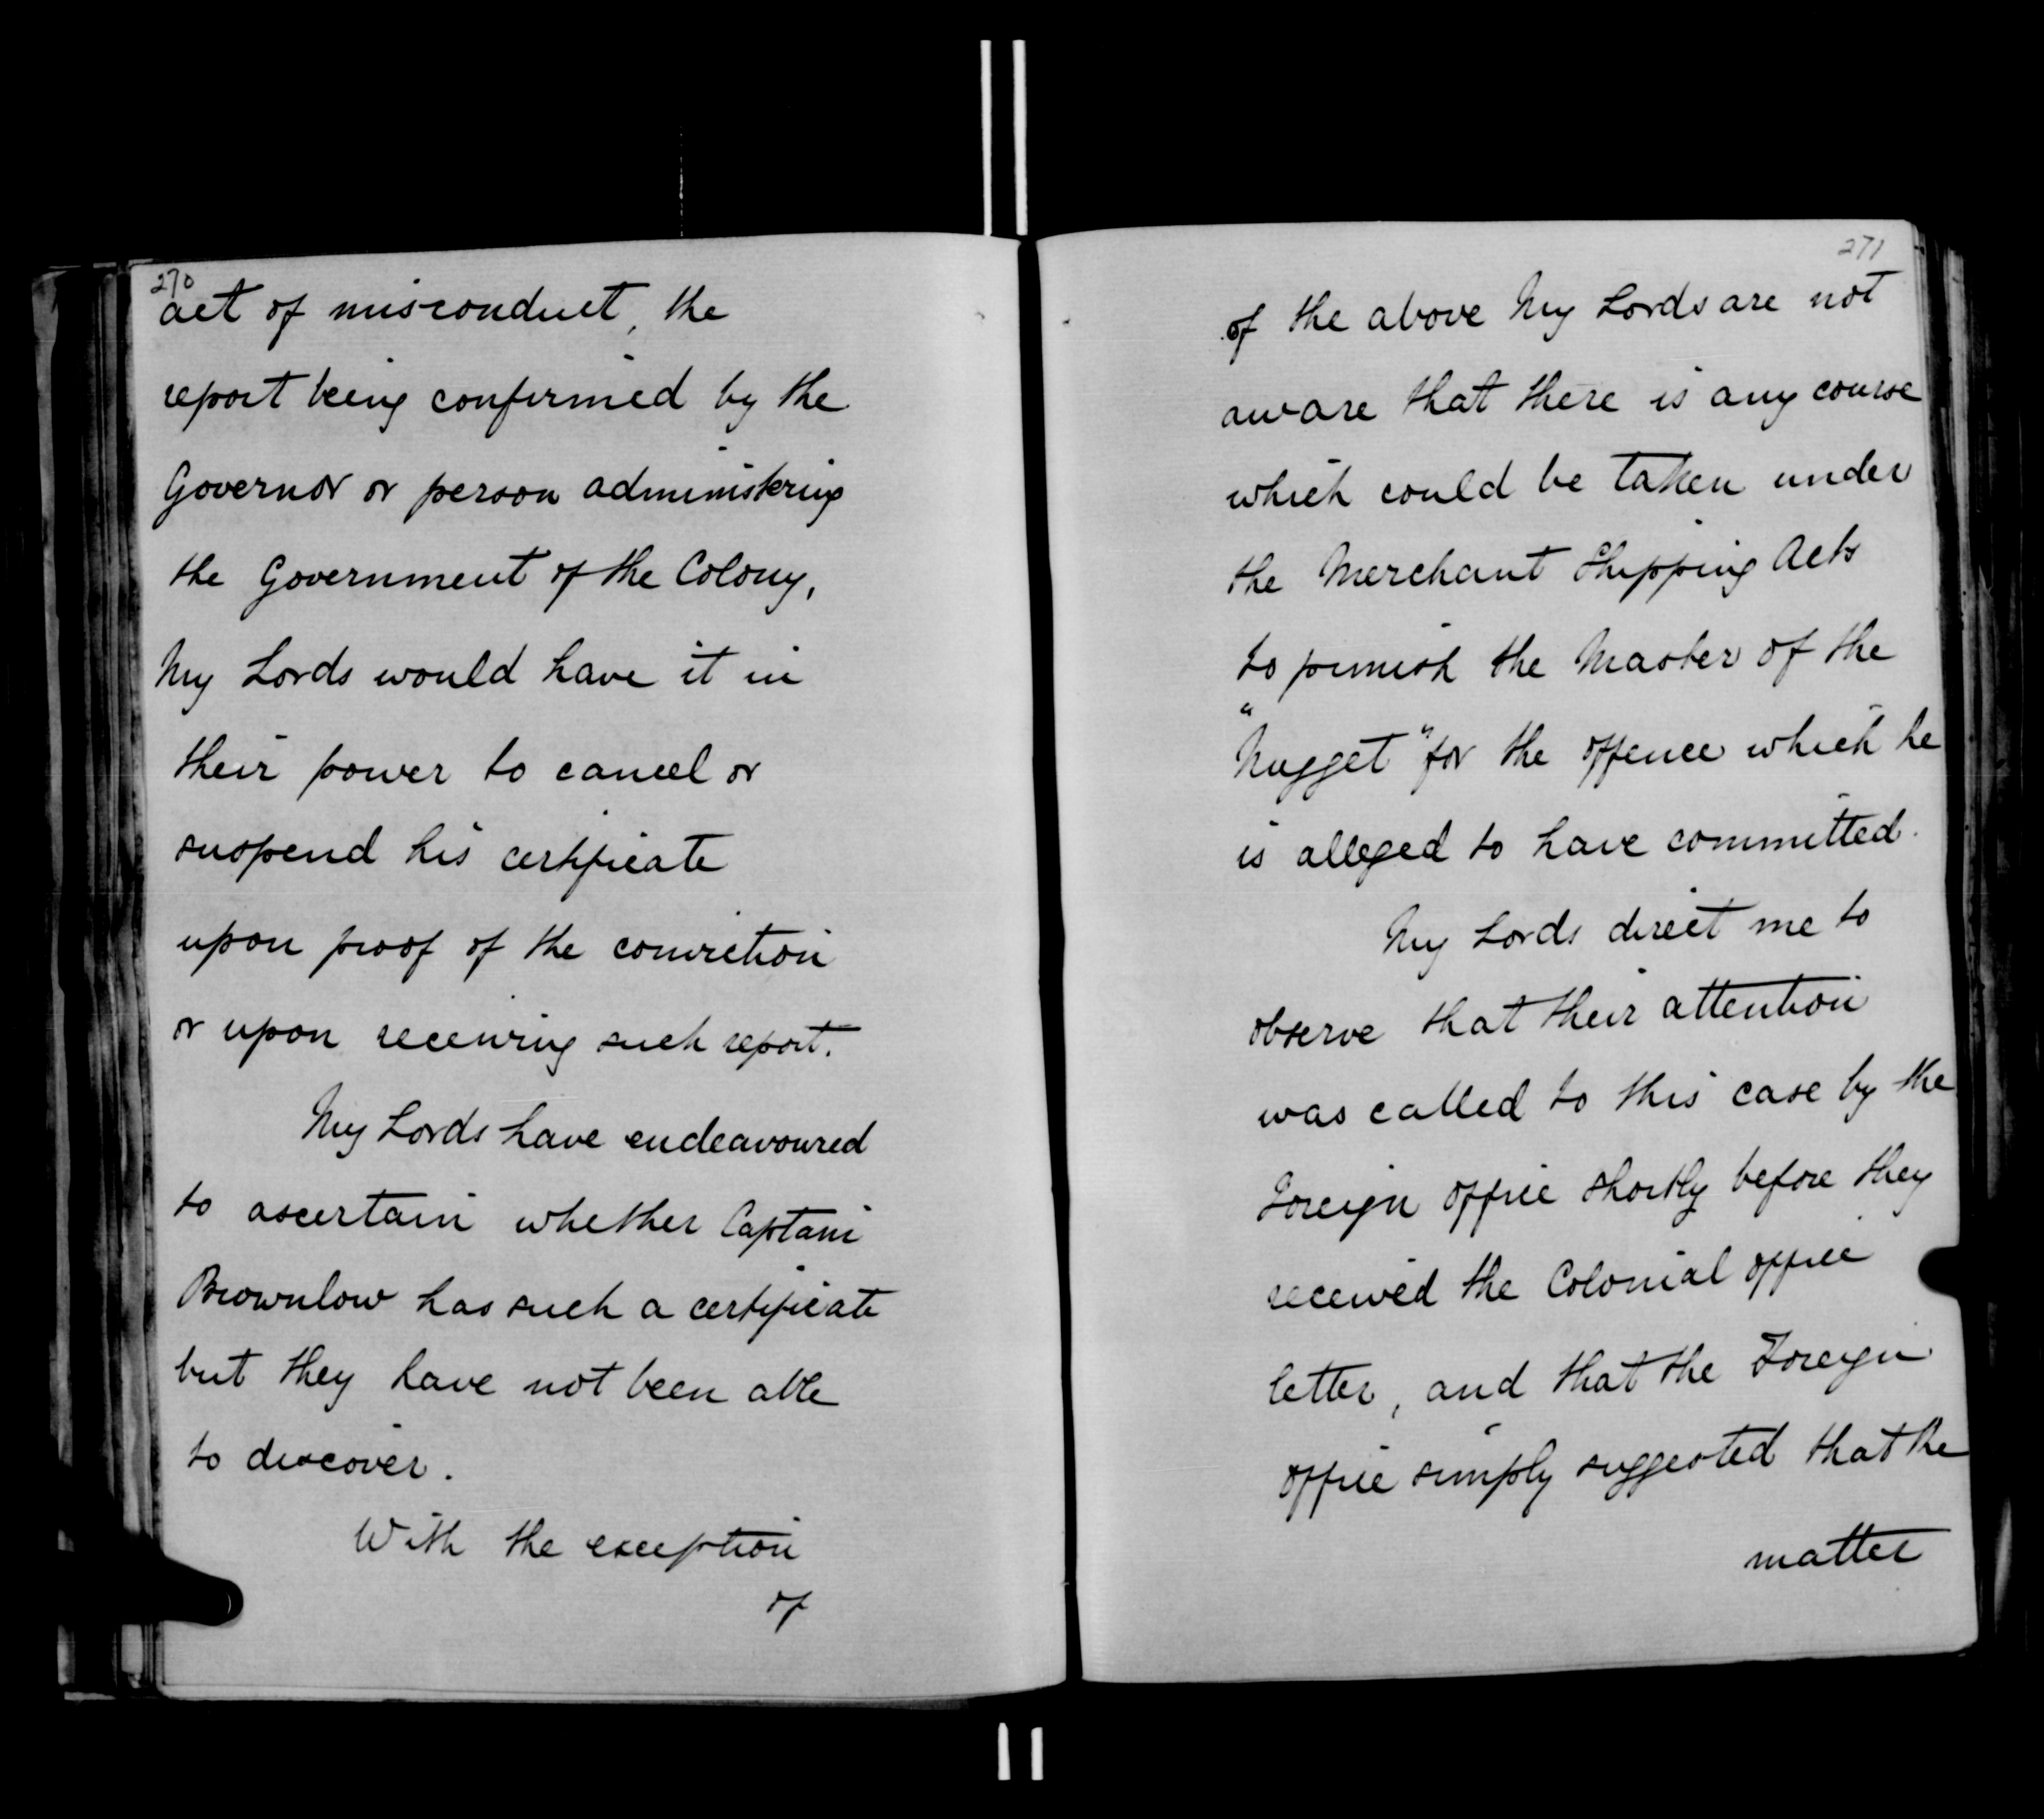 270
act of misconduct, the
report being confirmed by the
Governor or person administering
the Government of the Colony,
My Lords would have it in
their power to cancel or
suspend his certificate
upon proof of the conviction
or upon receiving such report.
My Lords have endeavoured
to ascertain whether Captain
Brownlow has such a certificate
but they have not been able
to discover.
With the exception
of
271
of the above My Lords are not
aware that there is any course
which could be taken under
the Merchant Shipping Acts
to punish the Master of the
"Nugget" for the offence which he
is alleged to have committed.
My Lords direct me to
observe that their attention
was called to this case by the
Foreign Office shortly before they
received the Colonial Office
letter, and that the Foreign
Office simply suggested that the
matter